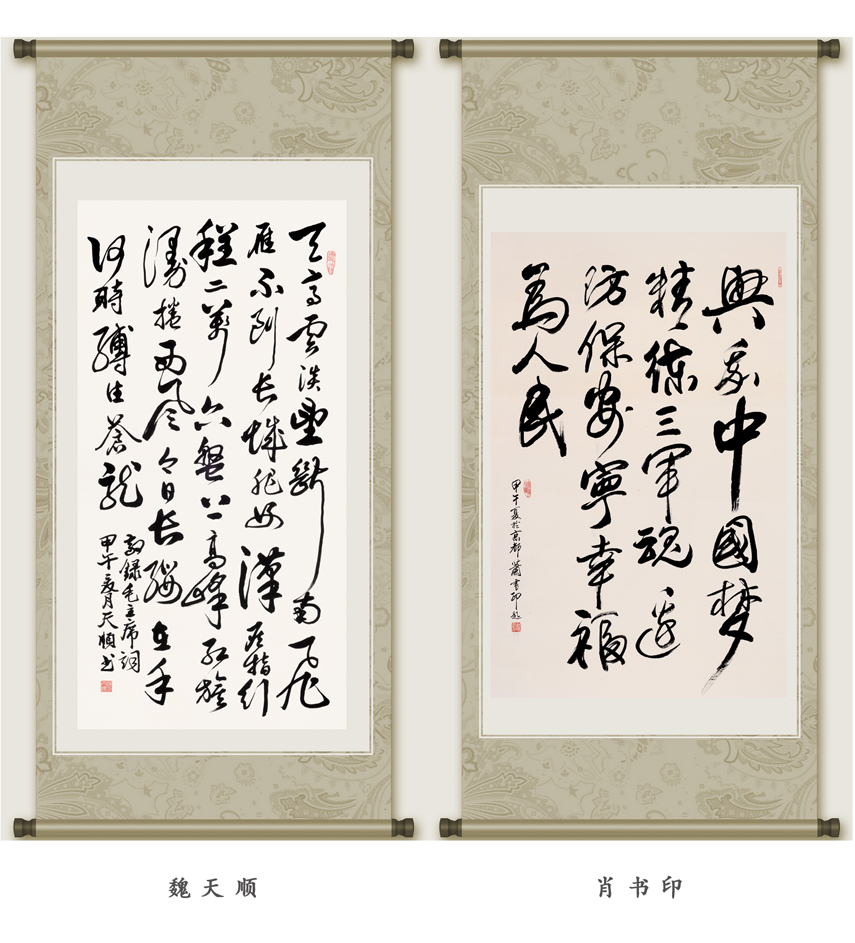 天高雲淡望斷南飛
雁不到长城非好漢屈指行
程二萬六盤山上高峰红旗
漫捲西风今日长缨在手
何時縛住蒼龙
敬録毛主席词
甲午夏月天順书
興我中國梦
精練三軍魂邊
防保安寧幸福
為人民
甲午夏於京都蕭書印题
魏天顺
肖书印